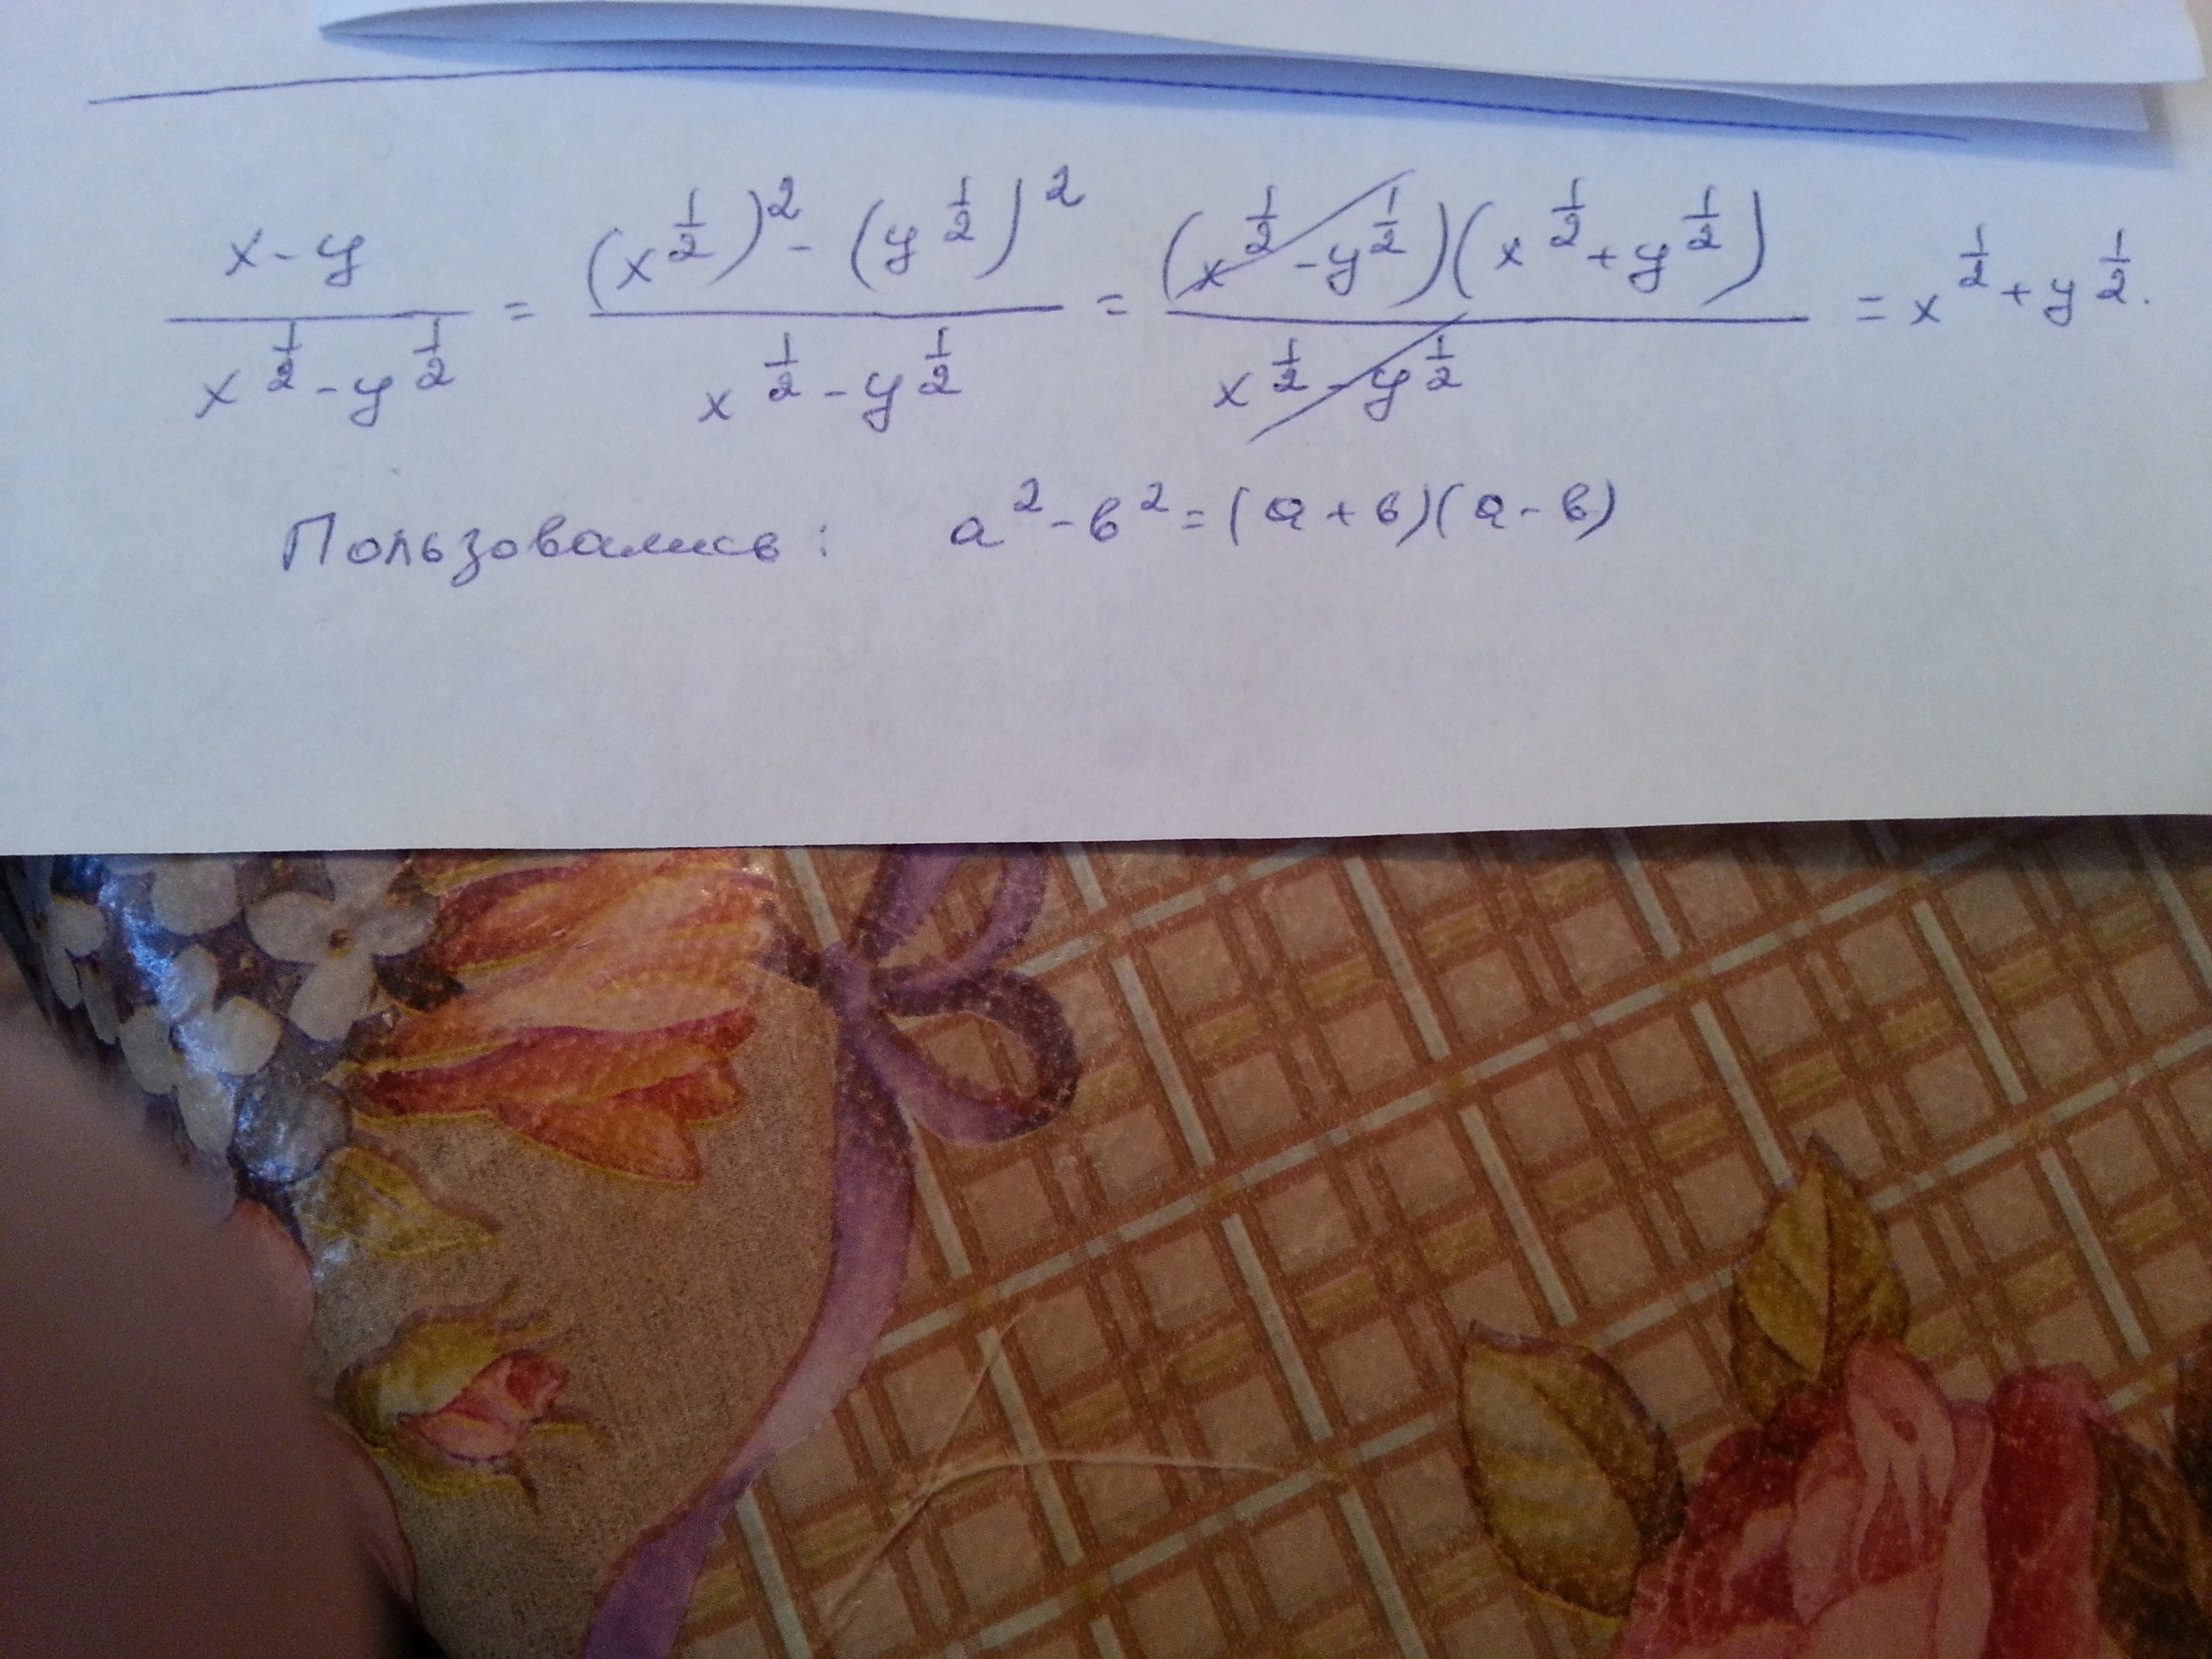 (x - y)/(x^{1/2} - y^{1/2}) = ((x^{1/2})^2 - (y^{1/2})^2)/(x^{1/2} - y^{1/2}) = ((x^{1/2} - y^{1/2})(x^{1/2} + y^{1/2}))/(x^{1/2} - y^{1/2}) = x^{1/2} + y^{1/2}.
Пользовались: a² - в² = (а + в)(а - в)